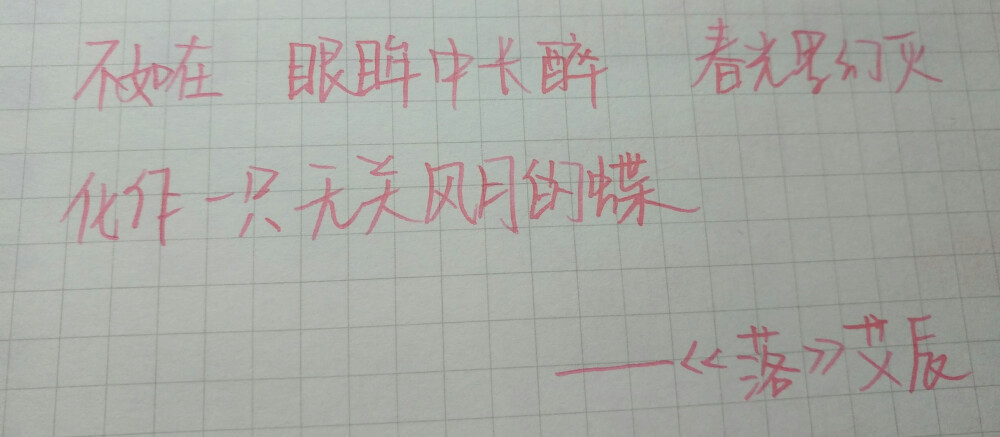 不如在 眼眸中长醉 春光里幻灭
化作一只无关风月的蝶
——《落》艾辰